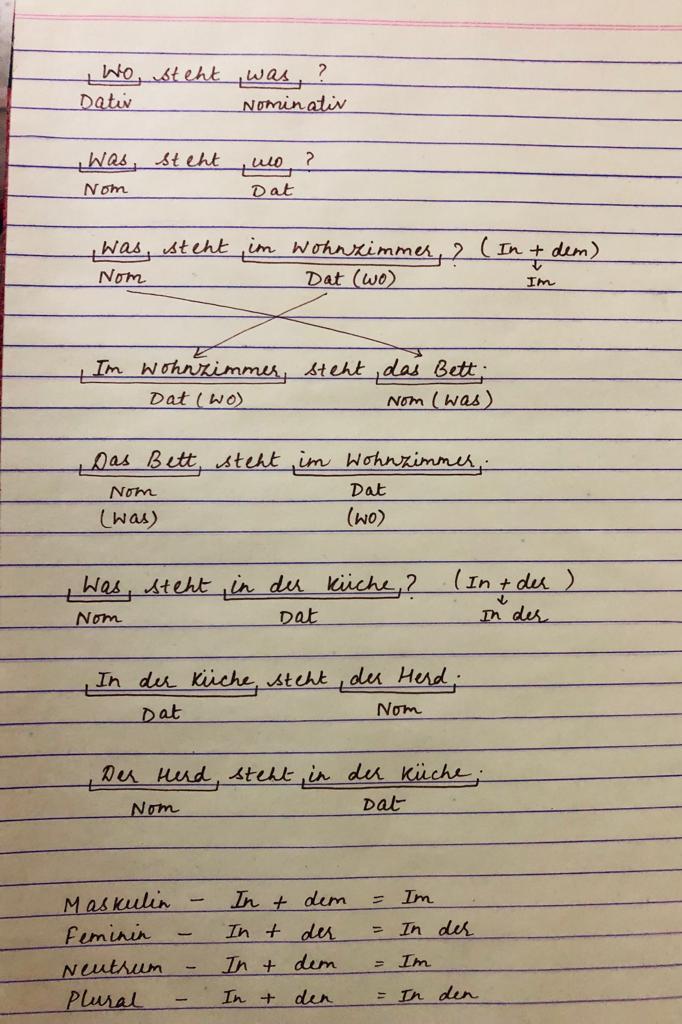 Wo steht was ?
Dativ Nominativ
Was steht wo ?
Nom Dat
Was steht im Wohnzimmer ? (In + dem)
Nom Dat (WO) Im
Im Wohnzimmer steht das Bett.
Dat (WO) Nom (Was)
Das Bett steht im Wohnzimmer.
Nom Dat
(Was) (WO)
Was steht in der Küche ? (In + der )
Nom Dat In der
In der Küche steht der Herd.
Dat Nom
Der Herd steht in der Küche.
Nom Dat
Maskulin - In + dem = Im
Feminin - In + der = In der
Neutrum - In + dem = Im
Plural - In + den = In den